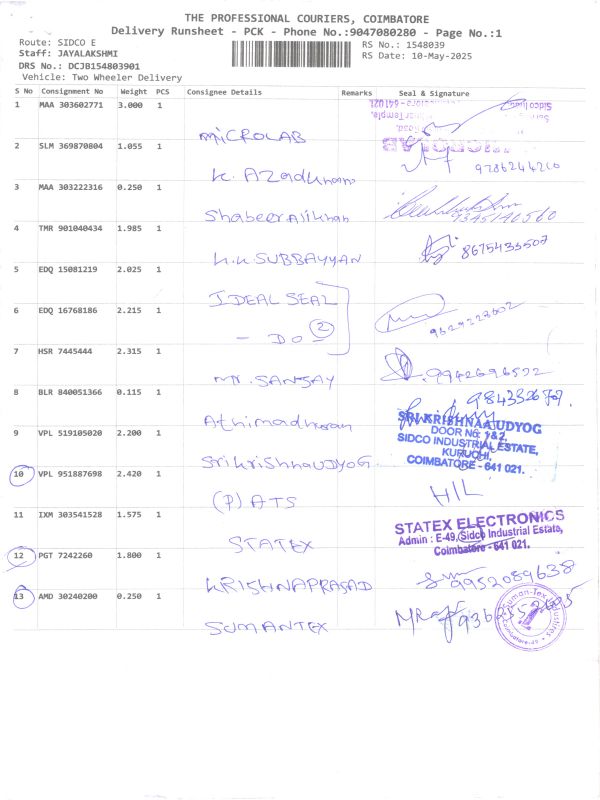 THE PROFESSIONAL COURIERS, COIMBATORE
Delivery Runsheet - PCK - Phone No.:9047080280 - Page No.:1
Route: SIDCO E
RS No.: 1548039
Staff: JAYALAKSHMI
RS Date: 10-May-2025
DRS No.: DCJB154803901
Vehicle: Two Wheeler Delivery
S No Consignment No Weight PCS Consignee Details Remarks Seal & Signature
1 MAA 303602771 3.000 1
MICROLAB
2 SLM 369870804 1.055 1
9786244216
K. Azad
3 MAA 303222316 0.250 1
Shabeer Ali Khan
9345140560
4 TMR 901040434 1.985 1
8675433507
K.K SUBBAYYAN
5 EDQ 15081219 2.025 1
IDEAL SEAL
6 EDQ 16768186 2.215 1
- DO - 2
7 HSR 7445444 2.315 1
9942696522
Mr. SANJAY
8 BLR 840051366 0.115 1
9 VPL 519105020 2.200 1
SRI KRISHNAA UDYOG
DOOR No. 1&2,
SIDCO INDUSTRIAL ESTATE,
KURUCHI,
COIMBATORE - 641 021.
SriKrishnaUDYOG
10 VPL 951887698 2.420 1
HIL
(P) ATS
11 IXM 303541528 1.575 1
STATEX ELECTRONICS
Admin : E-49, Sidco Industrial Estate,
Coimbatore - 641 021.
STATEX
12 PGT 7242260 1.800 1
9952089638
KRISHNAPRASAD
13 AMD 30240200 0.250 1
Suman-Tex Industries
Coimbatore-49
SUMANTEX